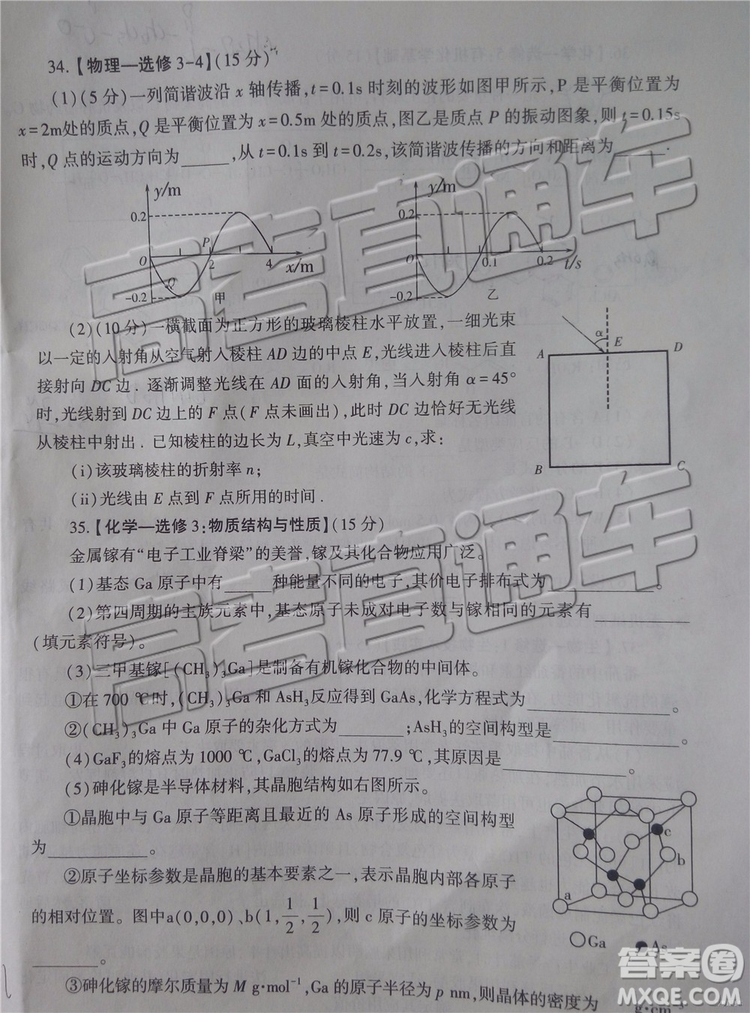 34.【物理—选修3-4】(15分)
(1)(5分)一列简谐波沿x轴传播,t=0.1s时刻的波形如图甲所示,P是平衡位置为
x=2m处的质点,Q是平衡位置为x=0.5m处的质点,图乙是质点P的振动图象,则t=0.15s
时,Q点的运动方向为______,从t=0.1s到t=0.2s,该简谐波传播的方向和距离为______.
y/m
0.2
O
-0.2
Q
P
2
4
x/m
甲
y/m
0.2
O
-0.2
0.1
0.2
t/s
乙
(2)(10分)一横截面为正方形的玻璃棱柱水平放置,一细光束
以一定的入射角从空气射入棱柱AD边的中点E,光线进入棱柱后直
接射向DC边.逐渐调整光线在AD面的入射角,当入射角α=45°
时,光线射到DC边上的F点(F点未画出),此时DC边恰好无光线
从棱柱中射出.已知棱柱的边长为L,真空中光速为c,求:
(i)该玻璃棱柱的折射率n;
(ii)光线由E点到F点所用的时间.
α
E
A
D
B
C
35.【化学—选修3:物质结构与性质】(15分)
金属镓有“电子工业脊梁”的美誉,镓及其化合物应用广泛。
(1)基态Ga原子中有______种能量不同的电子,其价电子排布式为______。
(2)第四周期的主族元素中,基态原子未成对电子数与镓相同的元素有______
(填元素符号)。
(3)三甲基镓[(CH₃)₃Ga]是制备有机镓化合物的中间体。
①在700℃时,(CH₃)₃Ga和AsH₃反应得到GaAs,化学方程式为______。
②(CH₃)₃Ga中Ga原子的杂化方式为______;AsH₃的空间构型是______。
(4)GaF₃的熔点为1000℃,GaCl₃的熔点为77.9℃,其原因是______。
(5)砷化镓是半导体材料,其晶胞结构如右图所示。
①晶胞中与Ga原子等距离且最近的As原子形成的空间构型
为______。
②原子坐标参数是晶胞的基本要素之一,表示晶胞内部各原子
的相对位置。图中a(0,0,0)、b(1,1/2,1/2),则c原子的坐标参数为
______。
a
b
c
Ga
As
③砷化镓的摩尔质量为M g·mol⁻¹,Ga的原子半径为p nm,则晶体的密度为______g·cm⁻³
高考直通车
高考直通车
答案圈